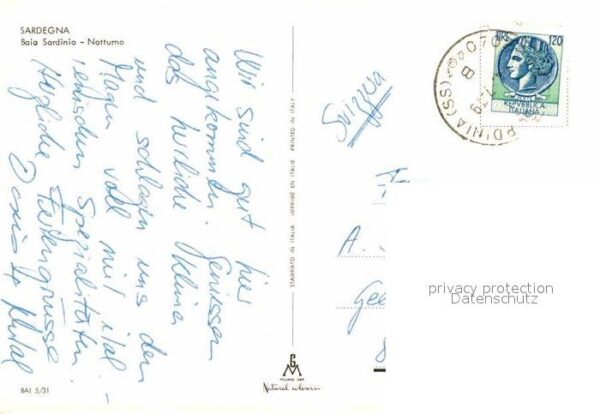 SARDEGNA
Baia Sardinia - Notturno
Wir sind gut hier
angekommen. Geniessen
das herrliche Klima
und schlagen uns den
Magen voll mit ital-
ienischen Spezialitäten.
Herzliche Feriengrüsse
Doris +
BAI 5/31
STAMPATO IN ITALIA - IMPRIMÉ EN ITALIE - PRINTED IN ITALY
GM
Natural colours
Svizzera
A.
privacy protection
Datenschutz
120
REPVBBLICA
ITALIANA
(SS)